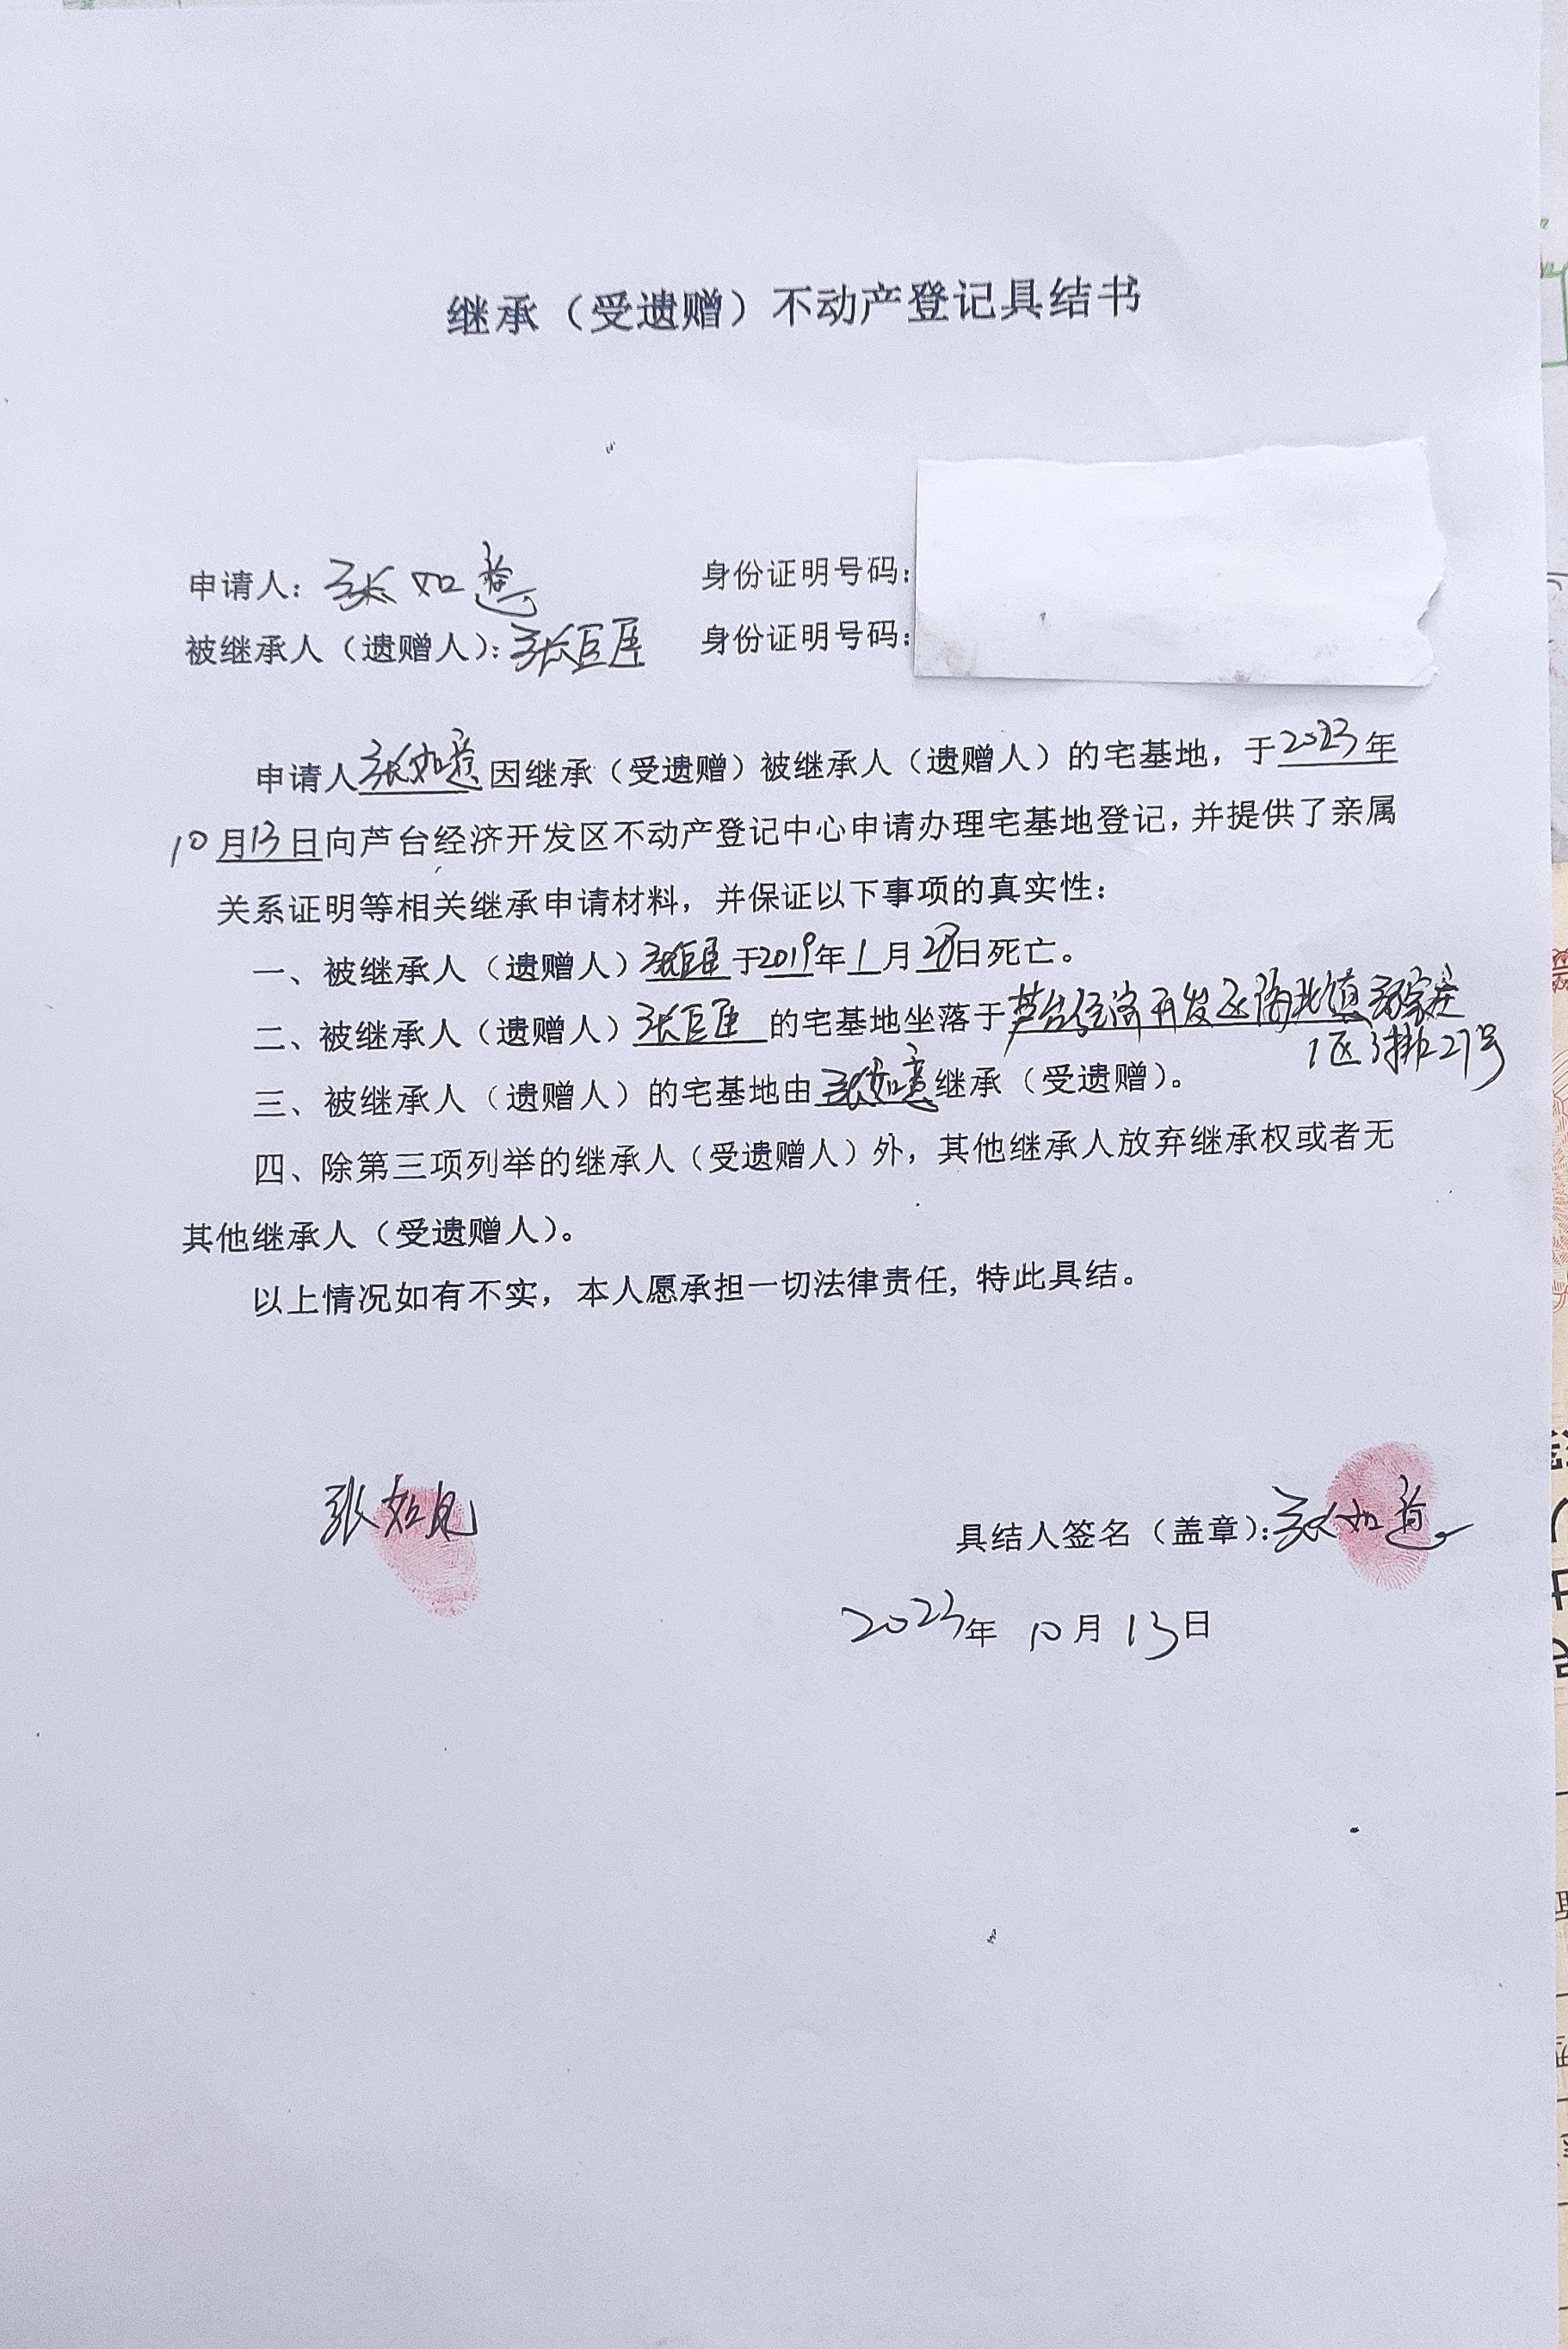 继承（受遗赠）不动产登记具结书
申请人：张如意 身份证明号码：
被继承人（遗赠人）：张巨臣 身份证明号码：
申请人张如意因继承（受遗赠）被继承人（遗赠人）的宅基地，于2023年
10月13日向芦台经济开发区不动产登记中心申请办理宅基地登记，并提供了亲属
关系证明等相关继承申请材料，并保证以下事项的真实性：
一、被继承人（遗赠人）张巨臣于2019年1月28日死亡。
二、被继承人（遗赠人）张巨臣的宅基地坐落于芦台经济开发区海北镇
1区3排27号
三、被继承人（遗赠人）的宅基地由张如意继承（受遗赠）。
四、除第三项列举的继承人（受遗赠人）外，其他继承人放弃继承权或者无
其他继承人（受遗赠人）。
以上情况如有不实，本人愿承担一切法律责任，特此具结。
张如见 具结人签名（盖章）：张如意
2023年 10月13日